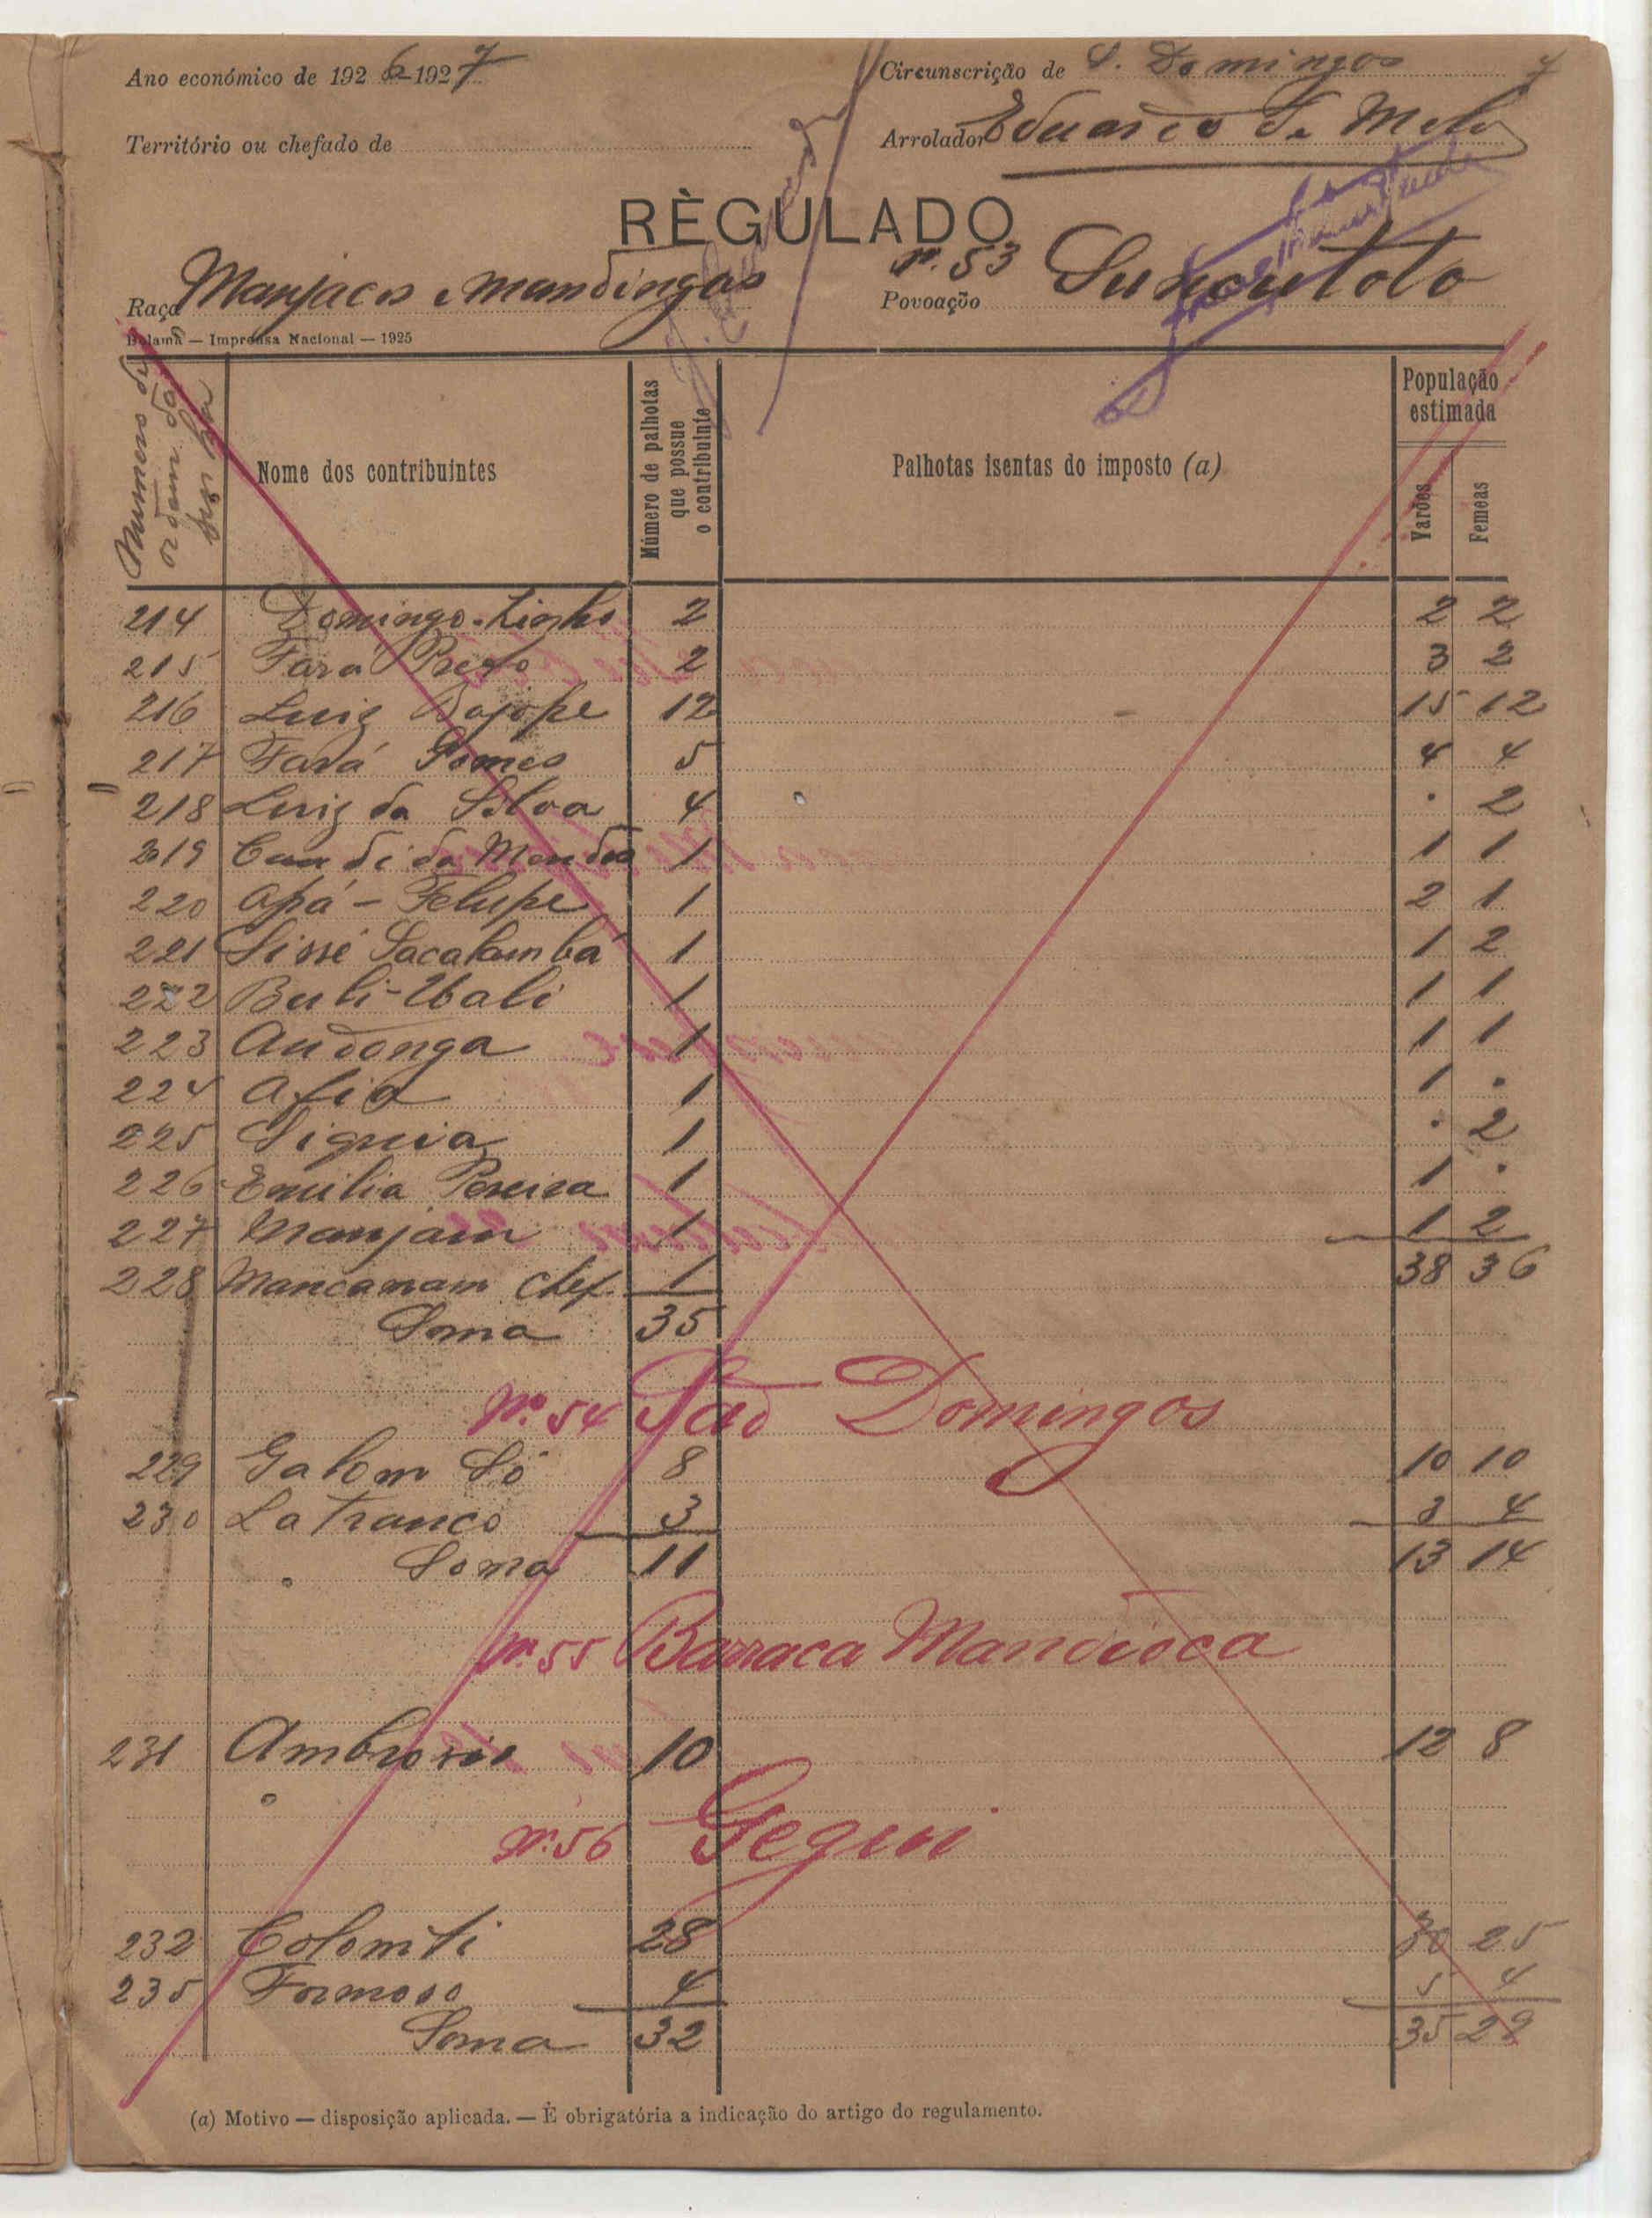 Ano económico de 1926-1927
Circunscrição de S. Domingos
Território ou chefado de
Arrolador Eduardo de Melo
RÈGULADO
Raça Manjacos e mandingas
nº. 53
Povoação Suncutoto
Bolama — Imprensa Nacional — 1925
Numero de ordem da
Nome dos contribuintes
Múmero de palhotas que possue o contribuinte
Palhotas isentas do imposto (a)
População estimada
Varões
Femeas
214 Domingo 2 2 2
215 Fará Preto 2 3 2
216 Luiz Bajope 12 15 12
217 Fará Gomes 5 4 4
218 Luiz da Silva 4 . 2
219 Candida Mendes 1 1 1
220 Apá - Felupe 1 2 1
221 Sissé Sacalamba 1 1 2
222 Buli-Ubali 1 1 1
223 Audonga 1 1 1
224 Afia 1 1 .
225 Siguia 1 . 2
226 Emilia Pereira 1 1 .
227 Manjam 1 1 2
228 Mancamam Chef. 1 38 36
Soma 35
Nº 54 São Domingos
229 Galom Só 8 10 10
230 La Tranco 3 3 4
Soma 11 13 14
Nº. 55 Barraca Mandioca
231 Ambrosio 10 12 8
Nº. 56 Gegui
232 Colomti 28 30 25
235 Formoso 4 5 4
Soma 32 35 29
(a) Motivo — disposição aplicada. — É obrigatória a indicação do artigo do regulamento.